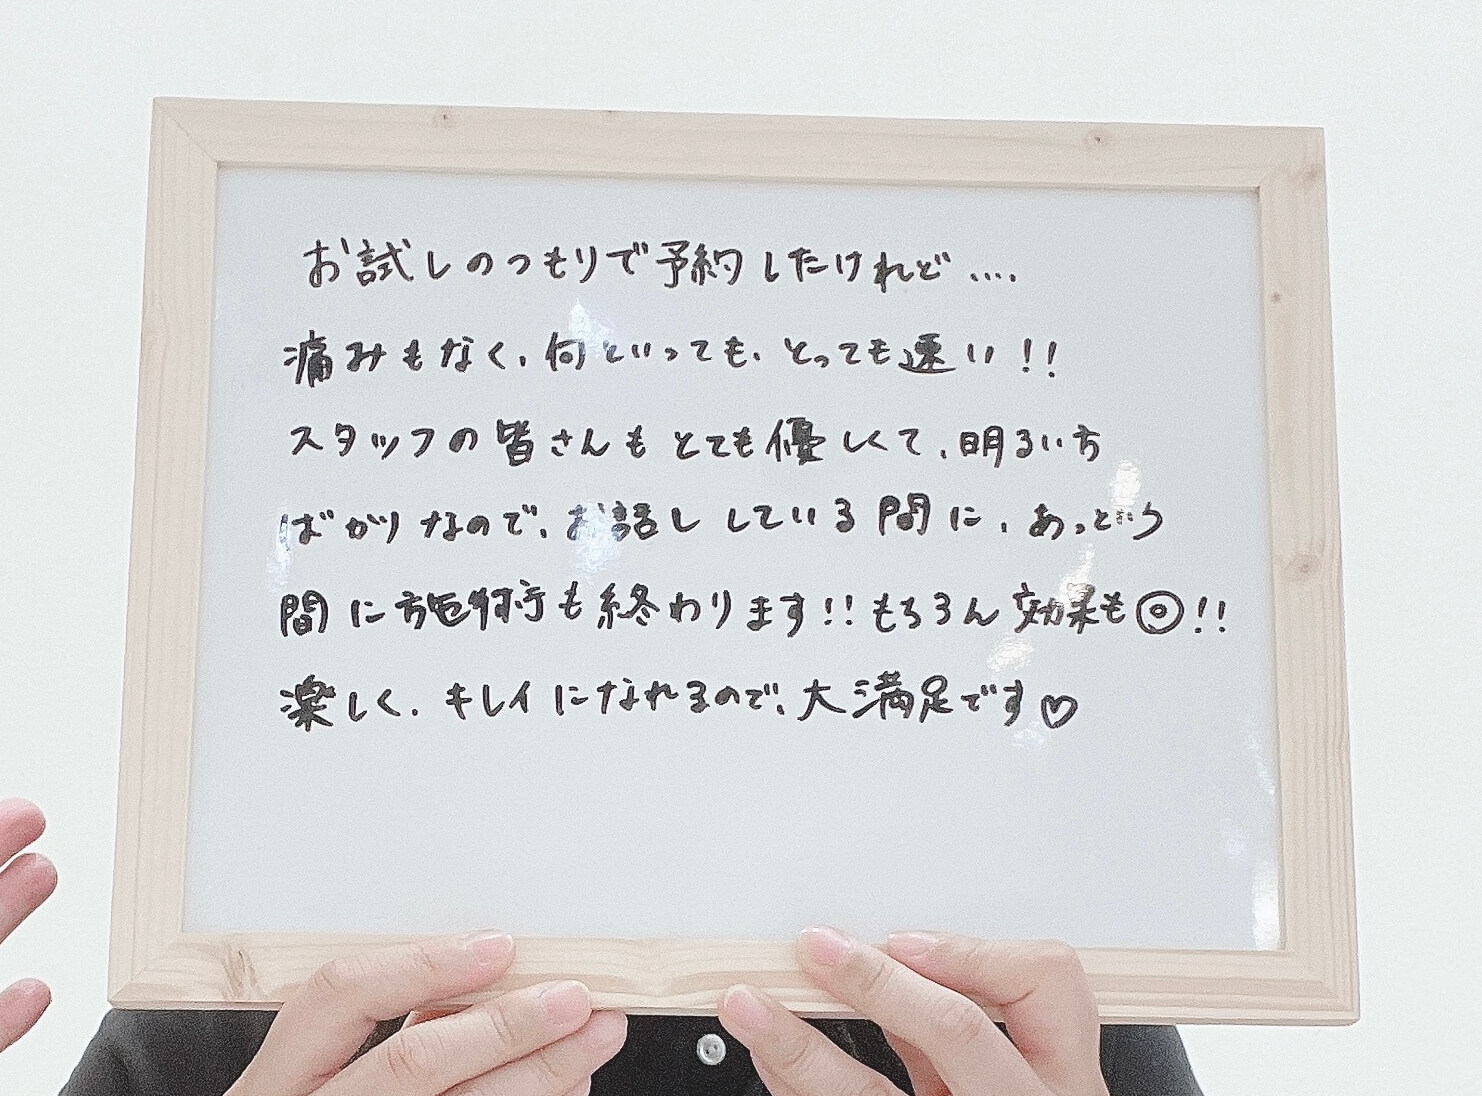 お試しのつもりで予約したけれど....
痛みもなく、何といっても、とっても速い!!
スタッフの皆さんもとても優しくて、明るい方
ばかりなので、お話ししている間に、あっという
間に施術も終わります!!もちろん効果も◎!!
楽しく、キレイになれるので、大満足です♡